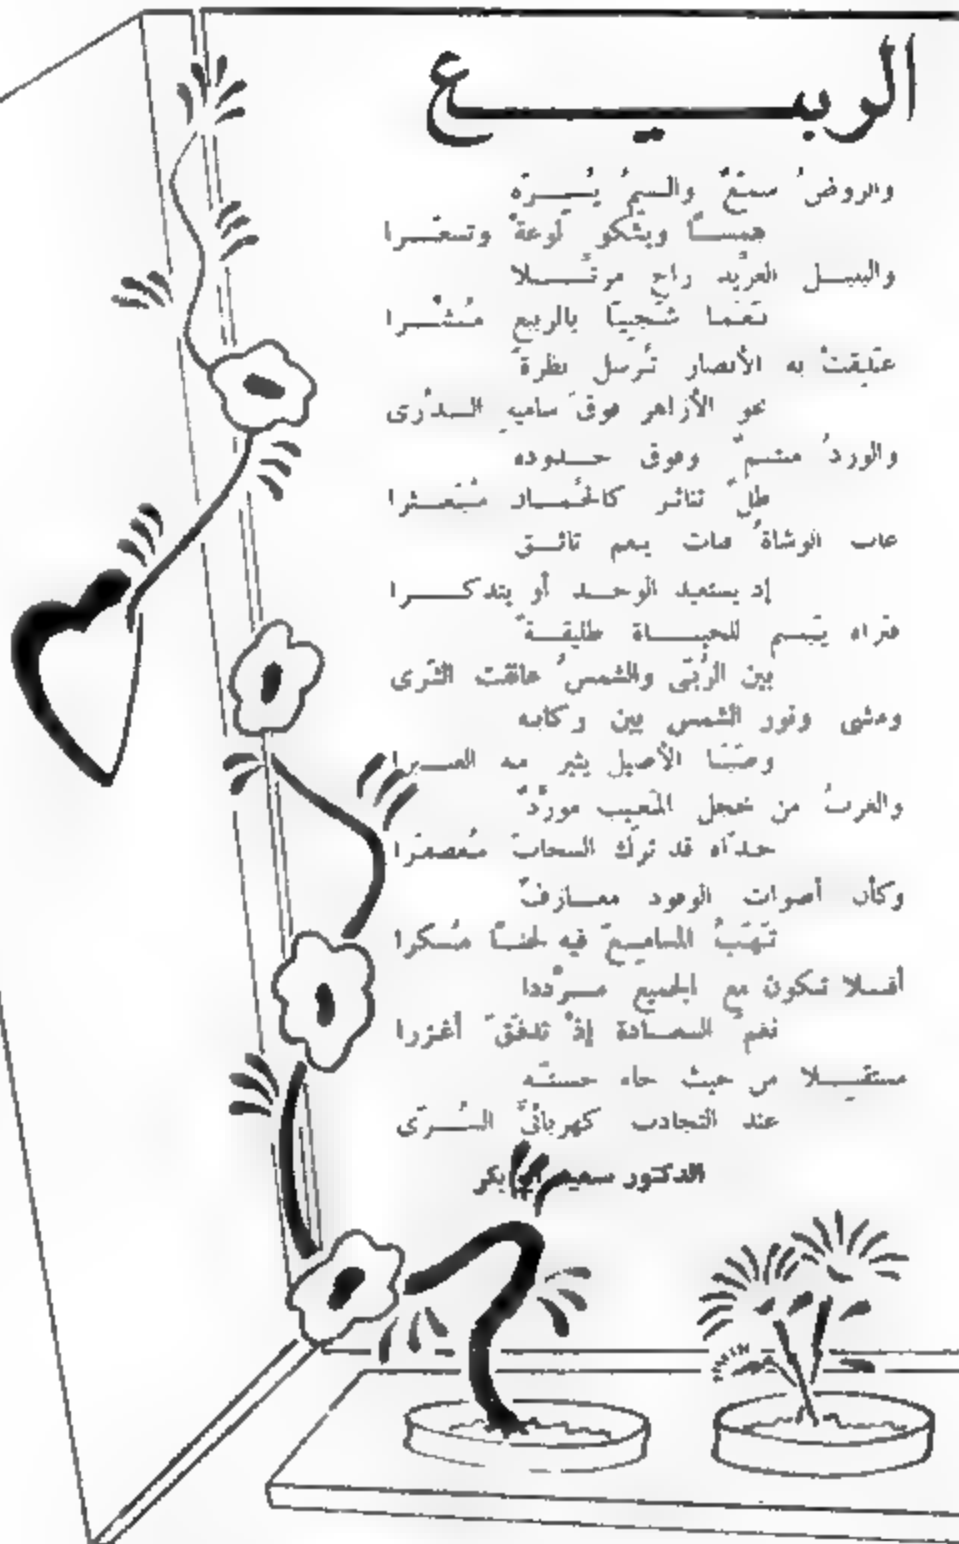 الربيع
والروضُ سمحٌ والنسيمُ يُسِرّه
همساً ويشكو لوعةً وتسعّرا
والبلبل الغرّيد راح مرتّلا
نغماً شجيّاً بالربيع مُبشّرا
علِقتْ به الأبصار تُرسل نظرةً
نحو الأزاهر فوق ساميةِ الذرى
والوردُ مبتسمٌ وفوق خدوده
طلٌّ تناثر كالجُمان مُبعثرا
غاب الوشاةُ فبات ينعم
إذ يستعيد الوجد أو يتذكرا
فتراه يبسم للحياة طليقةً
بين الرُّبى والشمسُ عانقت الثرى
ومشى ونور الشمس بين ركابه
وصَبَا الأصيل يثير منه العنبرا
والغربُ من خجل المغيب مورّدٌ
خدّاه قد ترك السحاب مُعصفرا
وكأن أصوات الوفود معازفٌ
تَهَبُ المسامعَ فيه لحناً مُسكرا
أفلا تكون مع الجميع مردّدا
نغم السعادة إذْ تدفّق أغزرا
مستقبلا من حيث جاء
عند التجاذب كهربائيَّ السُّرى
الدكتور سعيد أبو بكر